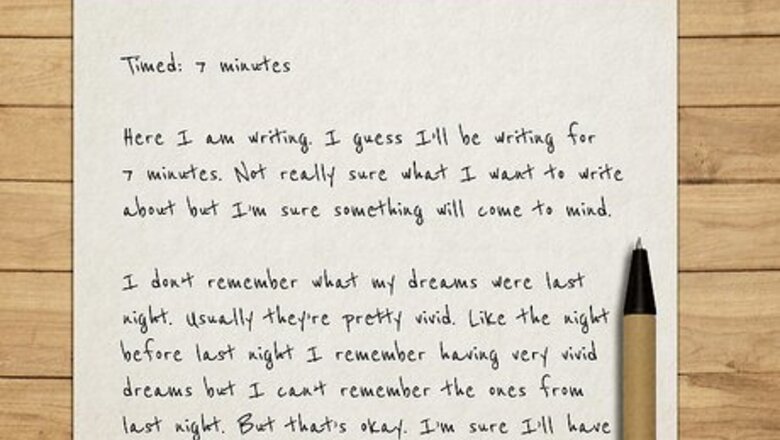 Timed: 7 minutes
Here I am writing. I guess I'll be writing for
7 minutes. Not really sure what I want to write
about but I'm sure something will come to mind.
I don't remember what my dreams were last
night. Usually they're pretty vivid. Like the night
before last night I remember having very vivid
dreams but I can't remember the ones from
last night. But that's okay. I'm sure I'll have